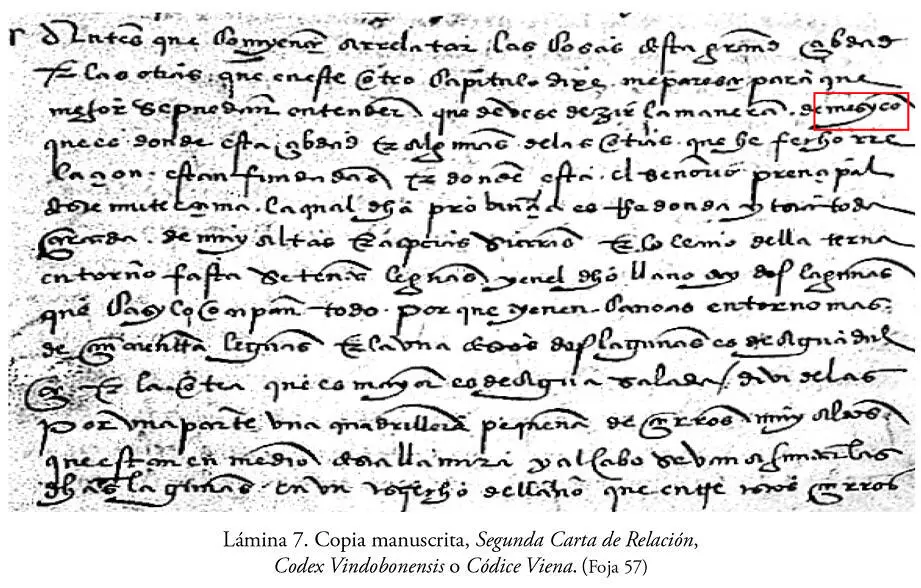 Antes que comyençe a rrelatar las cosas desta grand çibdad
E las otras que en este otro capitulo dixe me paresçe para que
mejor se puedan entender que devese dezir la manera de mesyco
que es donde esta çibdad E algunas de las otras que he fecho rre
laçion estan fundadas E donde esta el señorio prençipal
deste muteeçuma la qual dha probinçia es rredonda y esta toda
çercada de muy altas E asperas sierras E lo llano della terna
en torno fasta setenta leguas y en el dho llano ay dos lagunas
que casy lo ocupan todo por que tyenen canoas en torno mas
de çinquenta leguas E la vna destas dos lagunas es de agua dul
çe E la otra que es mayor es de agua salada / divídelas
por vna parte vna quadrillera pequeña de çerros muy altos
que estan en medio desta llanura y al cabo se van a juntar las
dhas lagunas en vn estrecho de llano que entre estos çerros
Lámina 7. Copia manuscrita, Segunda Carta de Relación,
Codex Vindobonensis o Códice Viena. (Foja 57)